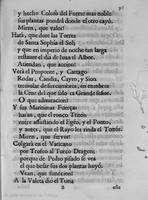 y hecho Coloso del Puerto mas noble
sus plantas pondrá donde el otro cayò.
Miren, que valor!
Hará, que dore las Torres
de Santa Sophia el Sol;
y que en imperio de noche tan larga
restaure el dia de Iuan el Albor.
Atiendan, que accion!
Verà el Ponponte, y Cartago
Rodas, Candia, Cayro, y Sion
tremolar de sus cumbres, en sombra
la Cruz del que solo es Grande señor.
O que admiracion!
Y sus Marineras Fuerças
haràn, que el ronco Triton
entre assustando al Egéo, y el Ponto,
y antes, que el Rayo les rinda el Tritòn.
Miren, que fervor!
Colgarà en el Vaticano
por Trofeo al Turco Dragon;
porque de Pedro pisado se vea
el que besar sus dos plantas huyò.
Vean, que funcion!
A la Valeta diò el Turia